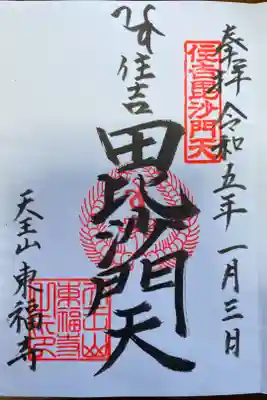 奉拝 令和五年一月三日
住吉毘沙門天
住吉
毘沙門天
天王山東福寺